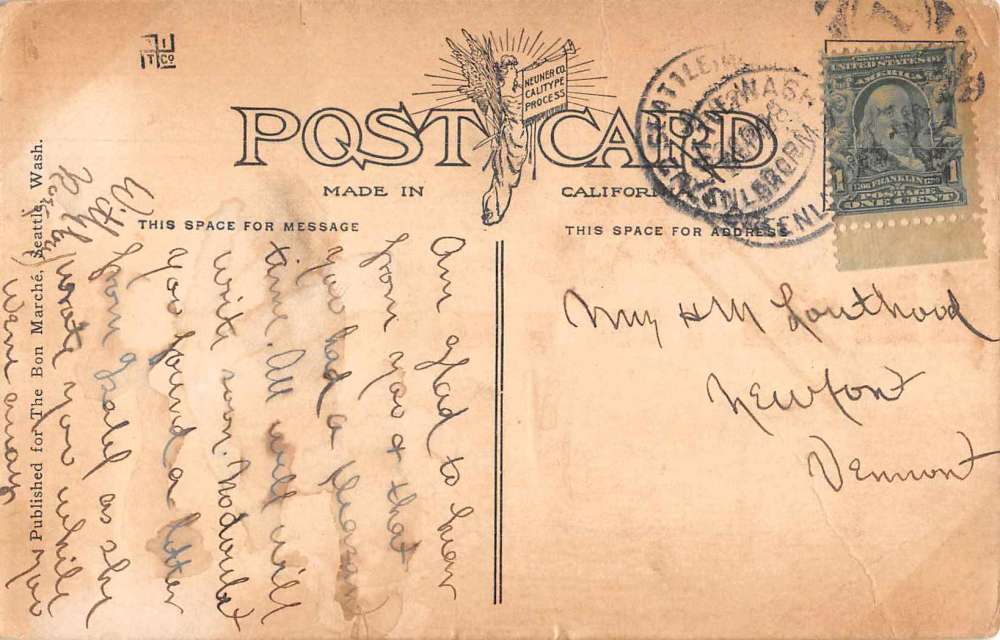 TI
TCO
NEUNER CO.
CALITYPE
PROCESS
POST CARD
MADE IN CALIFORNIA
THIS SPACE FOR MESSAGE
THIS SPACE FOR ADDRESS
SEATTLE WASH
UNITED STATES OF
AMERICA
1 FRANKLIN 1
POSTAGE
ONE CENT
H M Southood
Newport
Vermont
Am glad to hear
from you & that
you had a pleasant
time. All well will
write soon. No doubt
you found a letter
from Isabel as she
wrote you while
you were away
With
Published for The Bon Marché, Seattle, Wash.